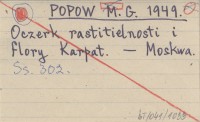 POPOW M. G. 1949.
Oczerk rastitielnosti i
flory Karpat. — Moskwa.
Ss. 302.